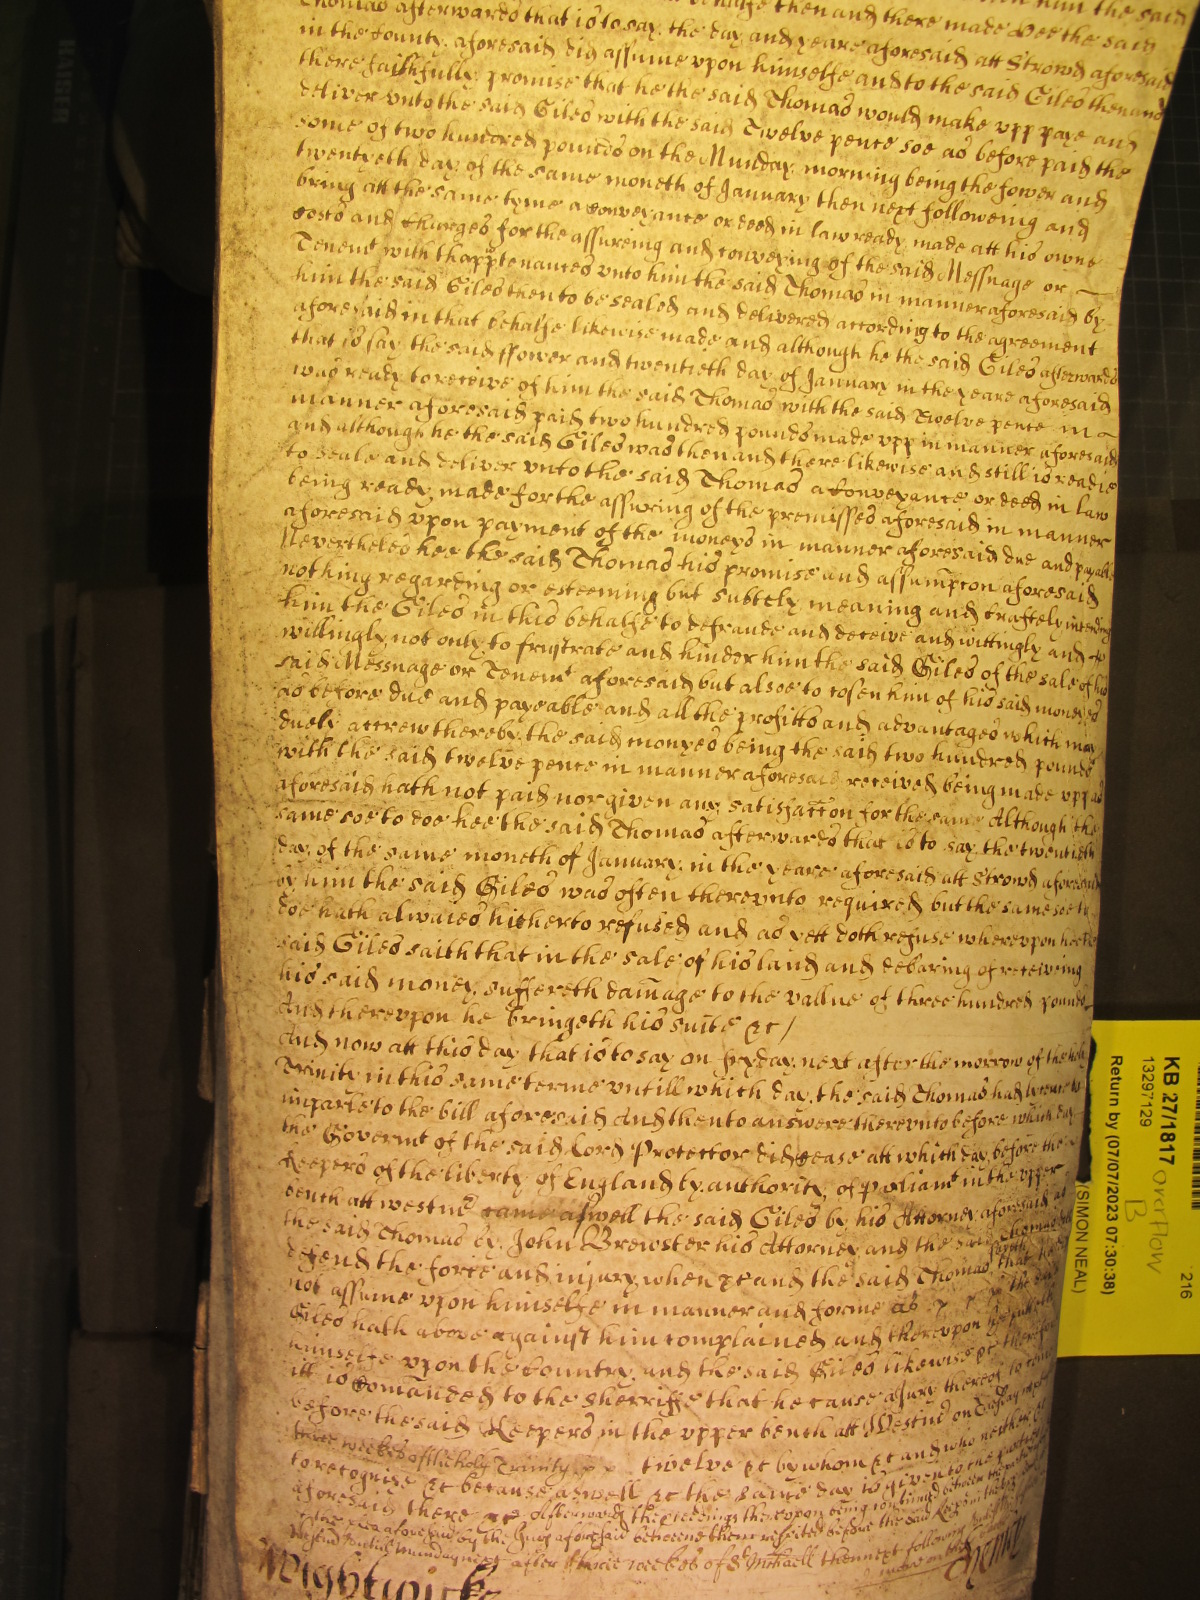 him the said
behalfe then and there made Hee the said
Thomas afterwards that is to say the day and yeare aforesaid att Strowd aforesaid
in the County aforesaid did assume upon himselfe and to the said Giles then and
there faithfully promise that he the said Thomas would make upp paye and
deliver unto the said Giles with the said Twelve pence soe as before paid the
some of two hundred pounds on the Munday morning being the fower and
twentyeth day of the same moneth of January then next followeing and
bring att the same tyme a conveyance or deed in law ready made att his owne
costs and charges for the assureing and conveying of the said Messuage or
Tenemt with thapptenances unto him the said Thomas in manner aforesaid by
him the said Giles then to be sealed and delivered according to the agreement
aforesaid in that behalfe likewise made and although he the said Giles afterwards
that is say the said ffower and twentieth day of January in the yeare aforesaid
was ready to receive of him the said Thomas with the said Twelve pence in
manner aforesaid paid two hundred pounds made upp in manner aforesaid
and although he the said Giles was then and there likewise and still is readie
to seale and deliver unto the said Thomas a Conveyance or deed in law
being ready made for the assuring of the premisses aforesaid in manner
aforesaid upon payment of the moneys in manner aforesaid due and payable
Neverthelés hee the said Thomas his promise and assumpcon aforesaid
nothing regarding or esteeming but subtely meaning and craftely intending
him the Giles in this behalfe to defraude and deceive and wittingly and
willingly not only to frustrate and hinder him the said Giles of the sale of his
said Messuage or Tenemt aforesaid but alsoe to cosen him of his said moneyes
as before due and payeable and all the profitts and advantages which may
duely accrew thereby the said monyes being the said two hundred pounds
with the said twelve pence in manner aforesaid received being made upp as
aforesaid hath not paid nor given any satisfaccon for the same Although the
same soe to doe hee the said Thomas afterwards that is to say the twentieth
day of the same moneth of January in the yeare aforesaid att Strowd aforesaid
by him the said Giles was often thereunto required but the same soe to
doe hath alwaies hitherto refused and as yett doth refuse whereupon hee the
said Giles saith that in the sale of his land and debaring of receiveing
his said money suffereth damage to the vallue of three hundred pounds
And thereupon he bringeth his suite &c /
And now att this day that is to say on fryday next after the morrow of the holy
Trinity in this same terme untill which day the said Thomas had licence to
imparle to the bill aforesaid And then to answere thereunto before which day
the Govermt of the said Lord Protector did cease att which day before the
Keepers of the liberty of England by authority of Parliamt in the upper
bench att westmr came aswell the said Giles by his Attorney aforesaid as
the said Thomas by John Brewster his Attorney and the said Thomas
defend the force and injury when &c and the said Thomas saith that he did
not assume upon himselfe in manner and forme as the said
Giles hath above against him complained and thereupon he putteth
himselfe upon the Country and the said Giles likewise &c therefore
itt is Comanded to the sherriffe that he cause a Jury thereof to come
before the said Keepers in the upper bench att Westmr on Tuesday next
three weekes of the holy Trinity twelve &c by whom &c and who neither &c
to recognise &c because aswell &c the same day is given to the parties
aforesaid there &c Afterwards the pceedings thereupon being continued between the
of the plea aforesaid by the Jury aforesaid betweene them respited before the said Keepers
untill Munday next after three weekes of St Michaell then next following
Wightwick